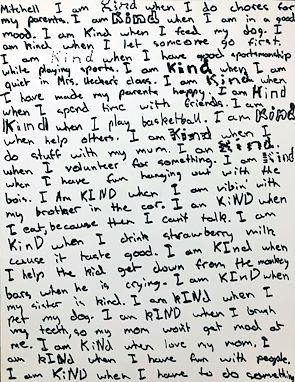 Mitchell I am Kind when I do chores for
my parents. I am Kind when I am in a good
mood. I am Kind when I feed my dog. I
am kind when I let someone go first.
I am Kind when I have good sportsmanship
while playing sports. I am Kind when I am
quiet in Mrs. class. I am Kind when
I have made my parents happy. I am Kind
when I spend time with friends. I am
Kind when I play basketball. I am Kind
when help others. I am Kind when I
do stuff with my mum. I am Kind.
when I volunteer for something. I am Kind
when I have fun hanging out with the
bois. I Am KIND when I am vibin' with
my brother in the car. I am KiND when
I eat, because then I can't talk. I am
KinD when I drink strawberry milk
cause it taste good. I am KInd when
I help the kid get down from the monkey
bars when he is crying. I am KInD when
my sister in kind. I am kIND when I
pet my dog. I am kIND when I brush
my teeth, so my mom won't get mad at
me. I am KiNd when love my mom. I
am kIND when I have fun with people.
I am KiND when I have to do something